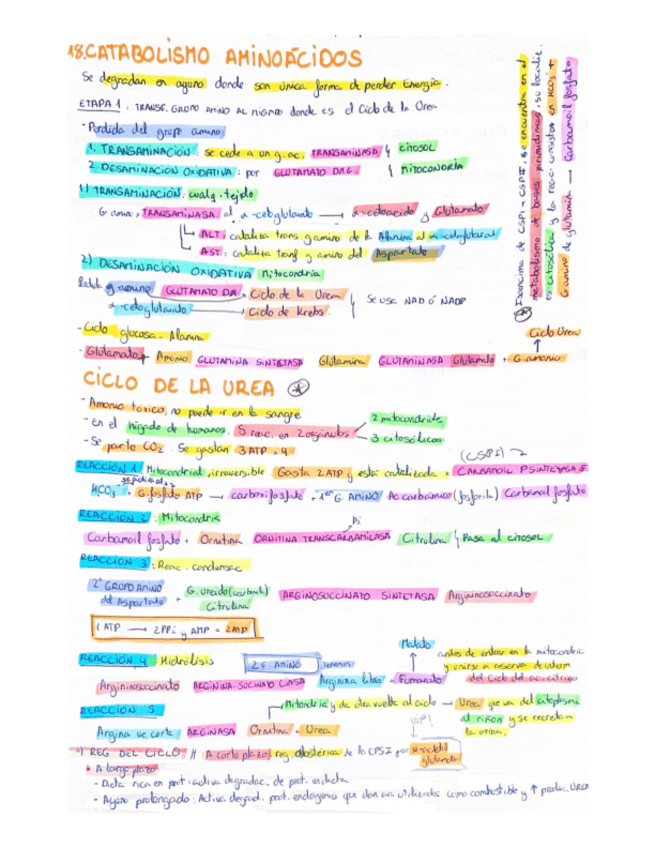 18. CATABOLISMO AMINOÁCIDOS
Se degradan en ayuno donde son única forma de perder Energía.
ETAPA 1: TRANSF. GRUPO AMINO AL mismo donde es el Ciclo de la Urea
- Perdida del grupo amino:
1. TRANSAMINACIÓN: se cede a un g. ac. TRANSAMINASA y CITOSOL
2. DESAMINACIÓN OXIDATIVA: por GLUTAMATO DHG. y MITOCONDRIA
1) TRANSAMINACIÓN: cualq. tejido
G amino TRANSAMINASA al α-cetoglutarato → α-cetoacido y Glutamato
ALT: cataliza trans. g amino de la Alanina al α-cetoglutarat
AST: cataliza transf g amino del Aspartato
2) DESAMINACIÓN OXIDATIVA mitocondria
g amino GLUTAMATO DH Ciclo de la Urea
α-cetoglutarato Ciclo de Krebs
Se usa NAD ó NADP
- Ciclo glucosa - Alanina
- Glutamato + Amonio GLUTAMINA SINTETASA Glutamina GLUTAMINASA Glutamato + G. amonio
Ciclo Urea
Isoenzima de CSPI → CSPII, se encuentra en el
metabolismo de bases pirimidinas, su localiz.
es citosólica y la reac. consiste en HCO3 +
G amino de glutamin → Carbamoil fosfato
CICLO DE LA UREA
- Amonio toxico, no puede ir en la sangre
- En el hígado de humanos. 5 reac. en 2 orgánulos
2 mitocondriales
3 citosólicas
- Se parte CO2. Se gastan 3 ATP
(CSPI)
REACCIÓN 1 Mitocondrial, irreversible Gasta 2 ATP y está catalizada x CARBAMOIL P SINTETASA
HCO3 + G. fosfato ATP → carboxifosfato + 1er G AMINO Ac carbámico (fosforila) Carbamoil fosfato
REACCIÓN 2: Mitocondria
Pi
Carbamoil fosfato + Ornitina ORNITINA TRANSCARBAMILASA Citrulina y Pasa al citosol
REACCIÓN 3: Reac. condensac
2º GRUPO AMINO del Aspartato + G. Ureido (carbonilo) Citrulina ARGINOSUCCINATO SINTETASA Argininosuccinato
1 ATP → 2PPi y AMP = 2ATP
REACCIÓN 4 Hidrólisis
2 G. AMINO Tenemos
Malato
antes de entrar en la mitocondria
y unirse a reserva de interm
del ciclo del ac. cítrico
Argininosuccinato ARGININA-SUCINATO LIASA Arginina libre + Fumarato
REACCIÓN 5
Mitondria y de otra vuelta al ciclo → Urea que va del citoplasma
al riñon y se excreta en
la orina.
Argina se corta ARGINASA Ornitina + Urea
VIP!
REG DEL CICLO // A corto plazo reg. alosterica de la CPSI por N-acetil glutamato
A largo plazo
- Dieta rica en prot: activa degradac. de prot. en dieta
- Ayuno prolongado: Activa degrad. prot. endógenas que dan aa utilizados como combustible y ↑ produc. UREA